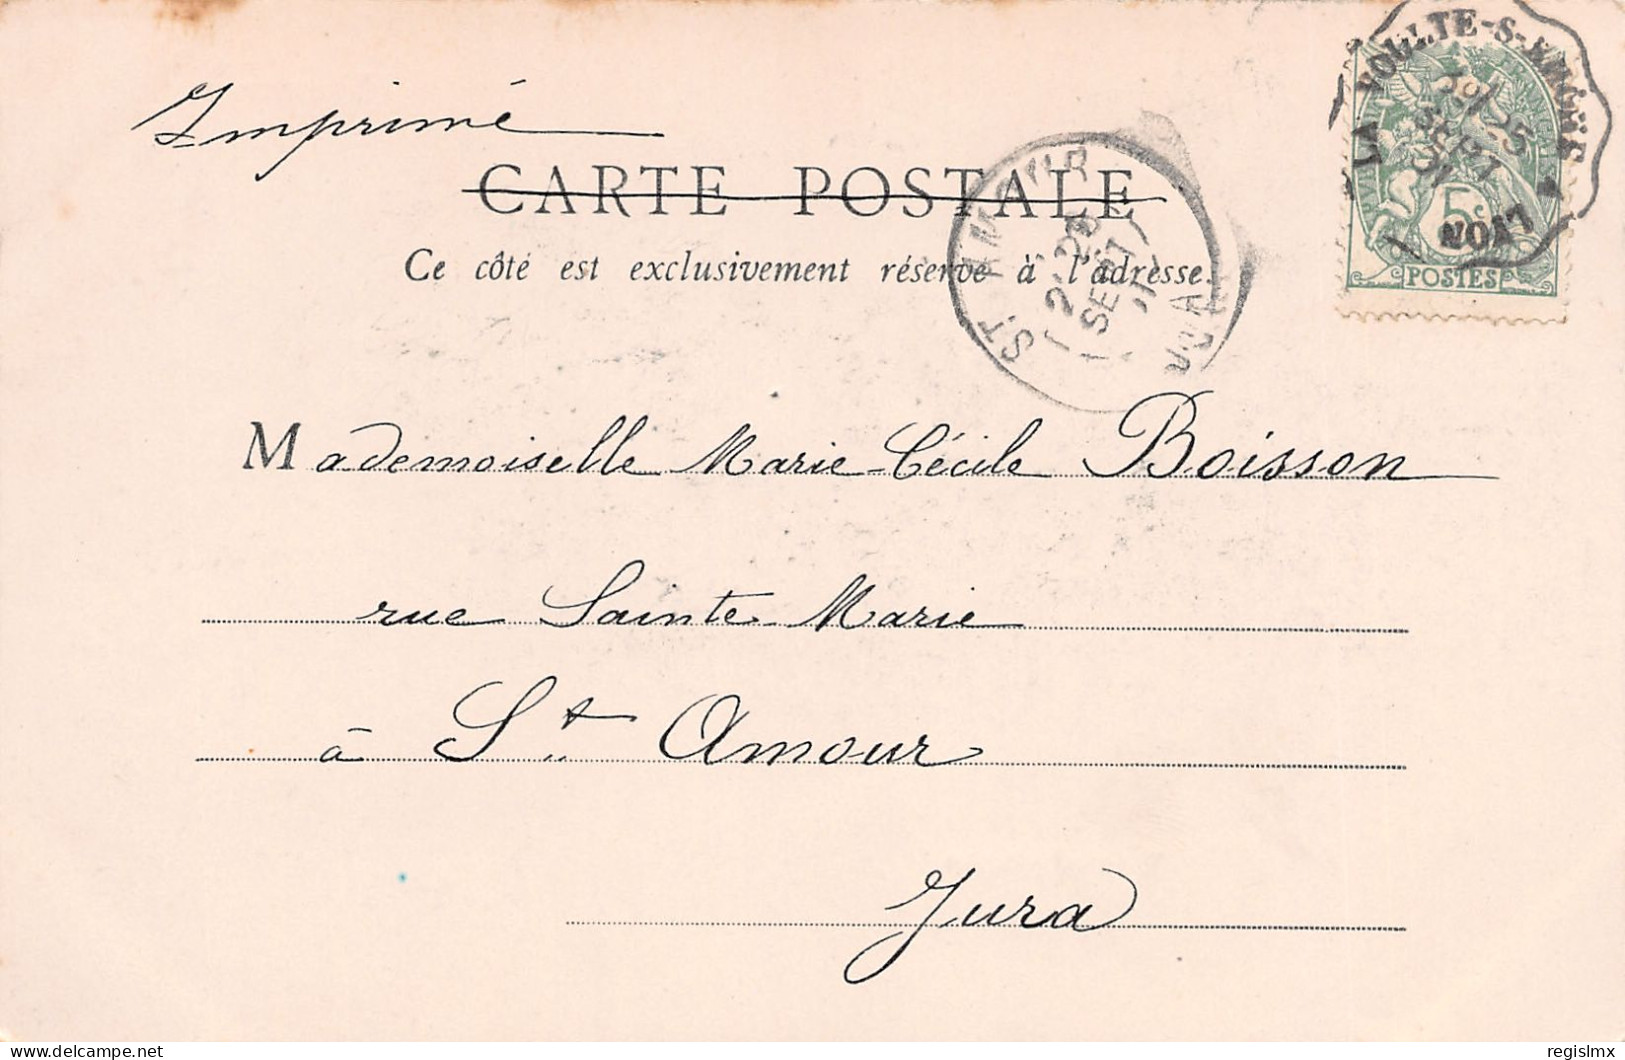 Imprimé
CARTE POSTALE
Ce côté est exclusivement réservé à l'adresse.
LA VOULTE-S-RHÔNE
25
SEPT
01
LYON
5c
POSTES
ST AMOUR
26
SEPT
01
JURA
Mademoiselle Marie-Cécile Boisson
rue Sainte-Marie
à St. Amour
Jura
delcampe.net
regislmx